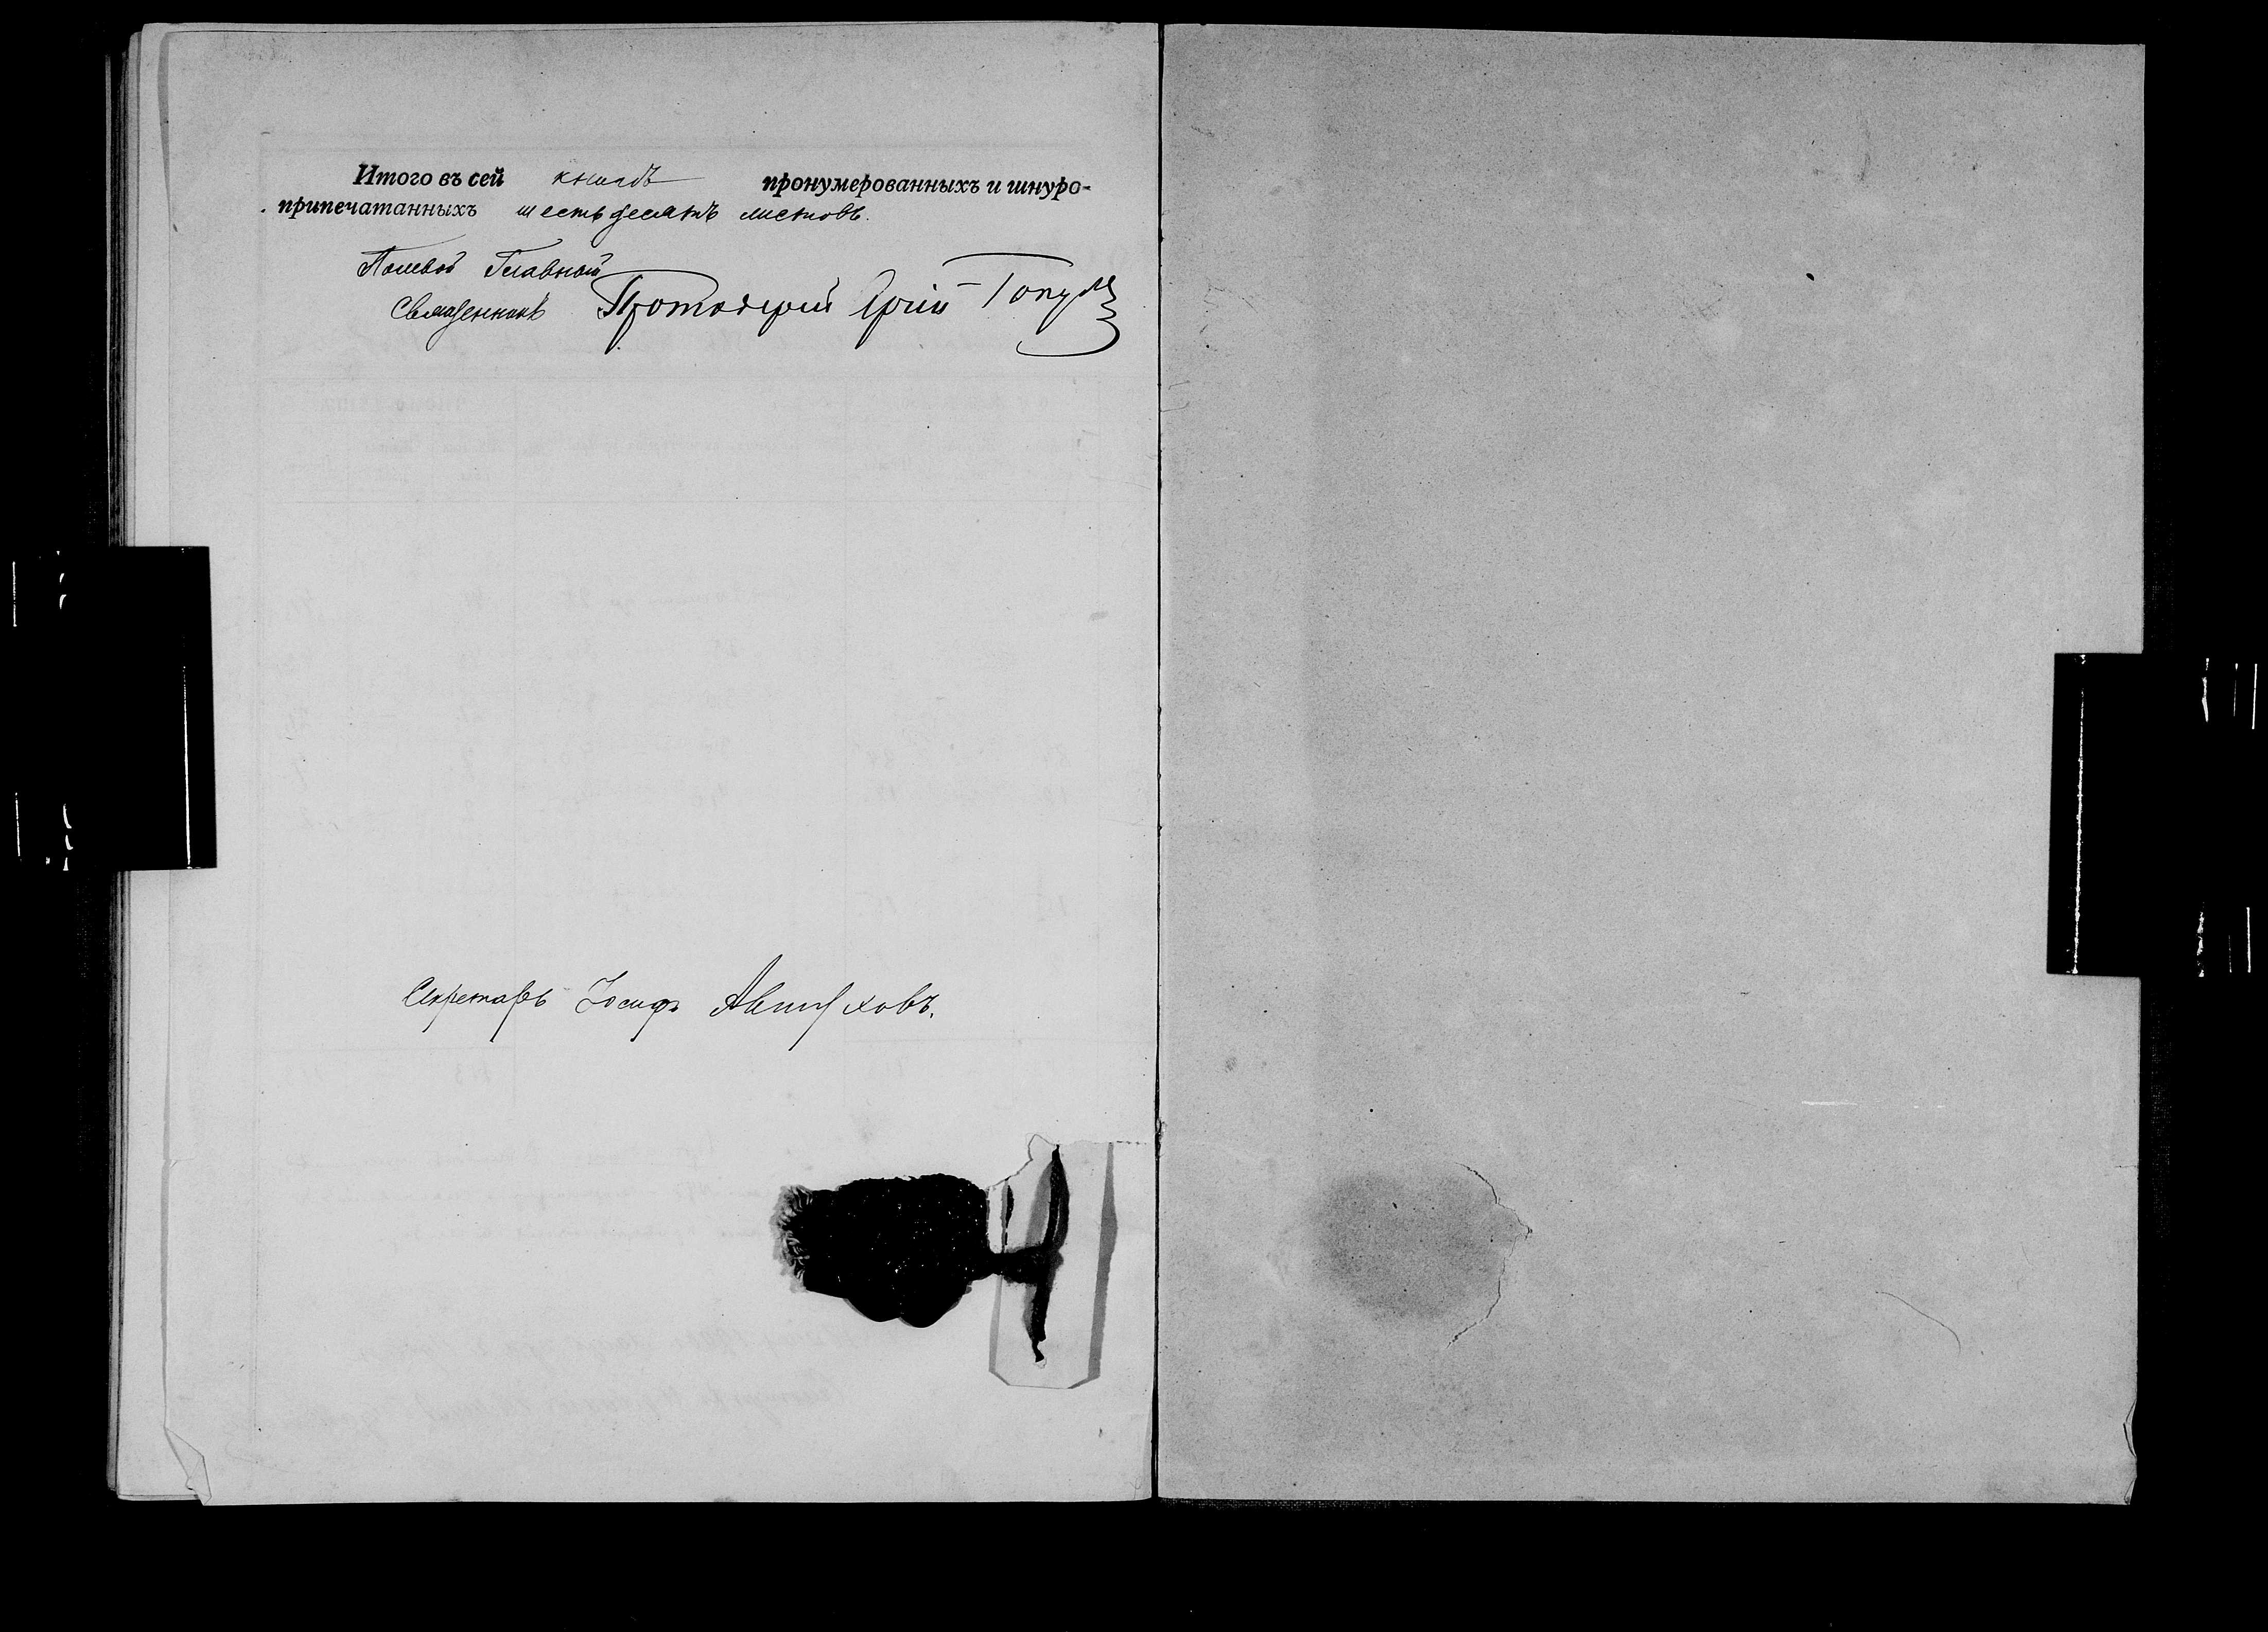 Итого въ сей книгѣ пронумерованныхъ и шнуро-
припечатанныхъ шестьдесятъ листовъ.
Полевой Главный
Священникъ Протоіерей
Секретарь Іосифъ